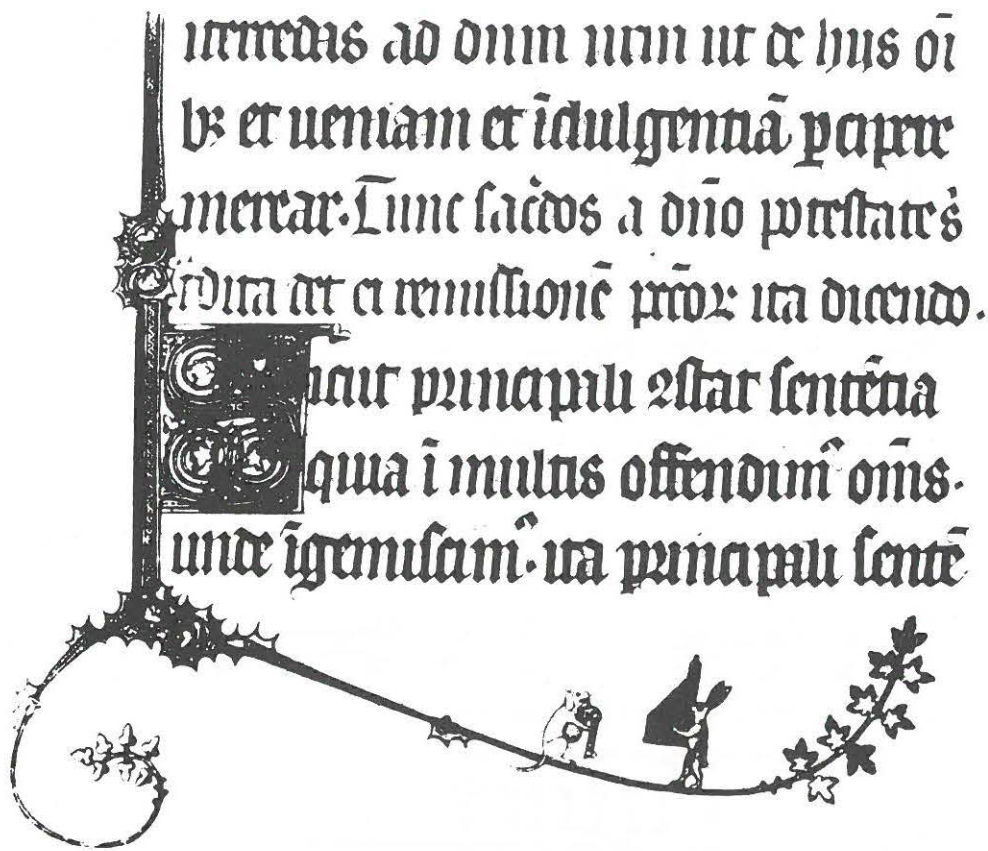 intercedas ad dnm nrm ut de hiis oī
bꝫ et ueniam et īdulgentiā ꝑcipere
merear. Tunc sac̓dos a dn̄o potestate s̓
ꝯdita det ei remissionē pc̄coꝝ ita dicendo.
Sicut principali ꝯstat sentētia
quia ī multis offendimꝰ om̄s.
unde īgemiscimꝰ. ita principali sentē